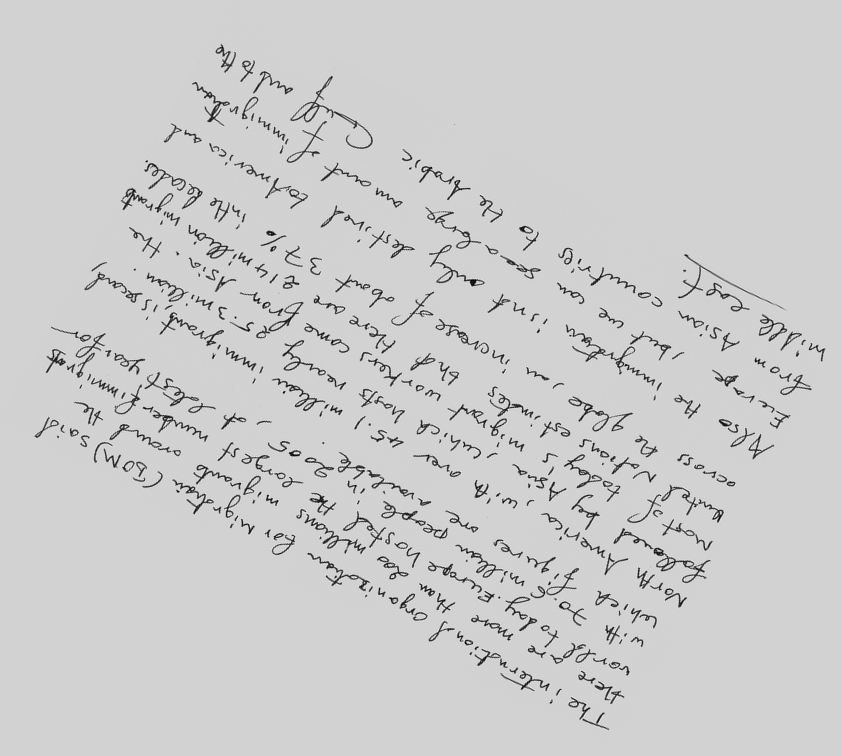 The international organization for migration (IOM) said
there are more than 200 millions migrants around the
world today. Europe hosted the largest number of immigrants
with 70.6 million people in 2005, at latest year for
which figures are available.
North America, with over 45.1 million immigrants, is second,
followed by Asia, which hosts nearly 25.3 million.
Most of today's migrant workers come from Asia. the
United Nations estimates that there are 214 million migrants
across the globe, an increase of about 37% in the decades.
Also the immigration isn't only destined to America and
Europe, but we can see a large amount of immigration
from Asian countries to the Arabic Gulf and to the
middle east.